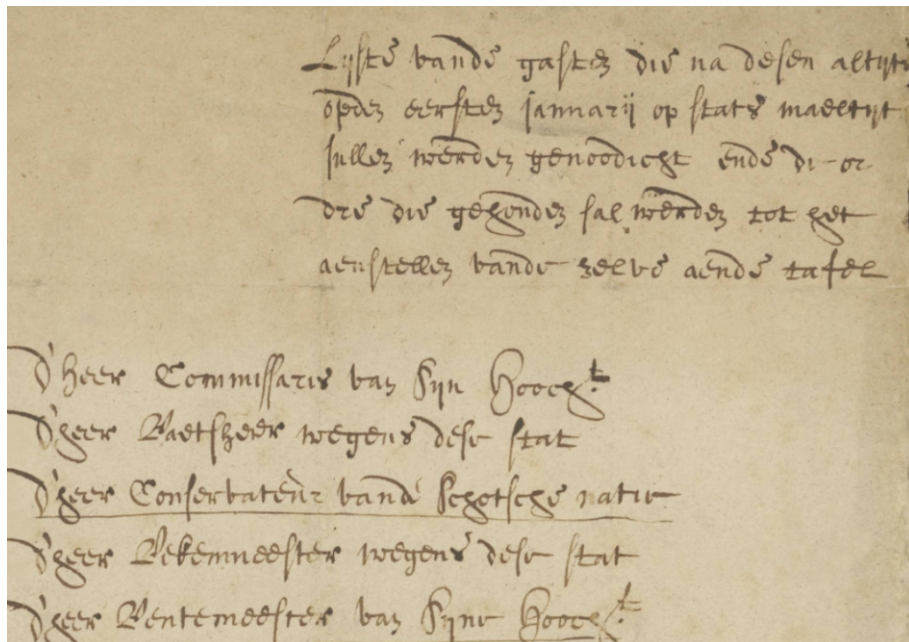 Lijste vande gasten die na desen altijt
opden eersten januarij op stats maeltijt
sullen werden genoodicht ende di or
dre die gehouden sal werden tot het
aenstellen vande zelve aende tafel
D'heer Commissaris van Sijn Hooch.t
D'heer Raetsheer wegens dese stat
D'heer Conservateur vande Schotsche natie
D'heer Rekenmeester wegens dese stat
D'heer Rentemeester van Sijne Hooch.t